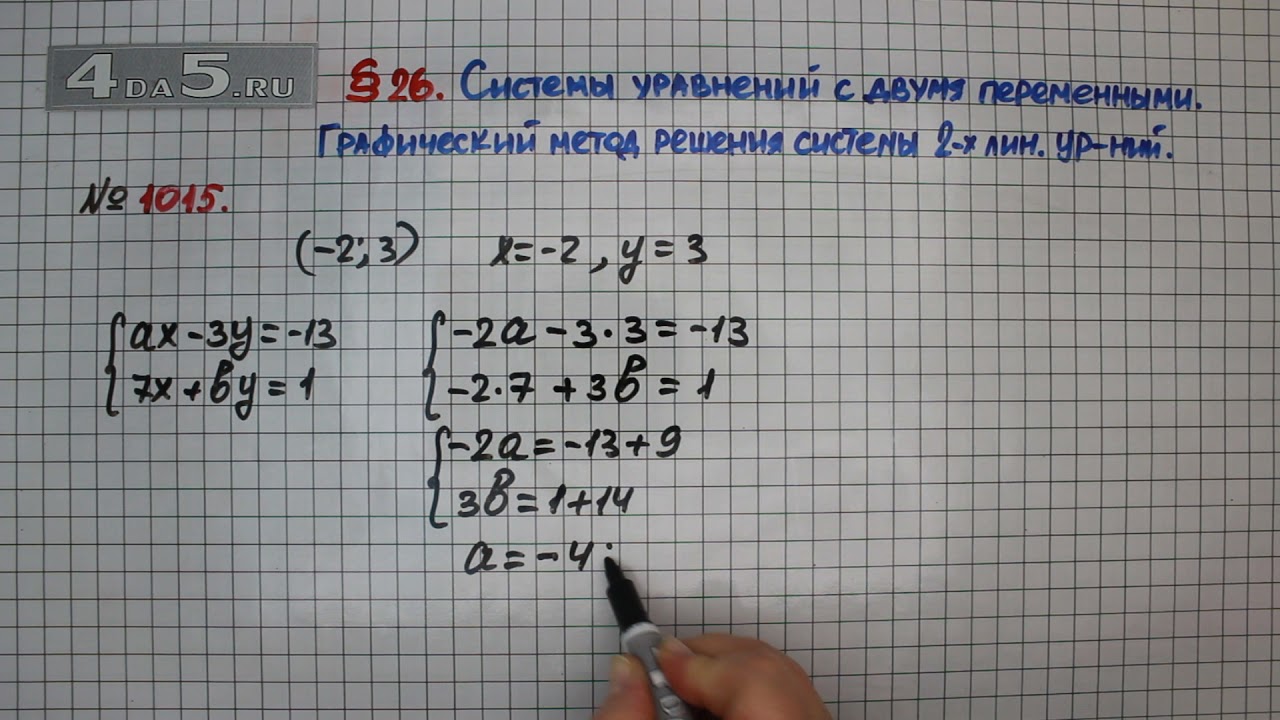 4DA5.RU
§ 26. Системы уравнений с двумя переменными.
Графический метод решения системы 2-х лин. ур-ний.
№ 1015.
(-2; 3) x=-2, y=3
{ax-3y=-13
7x+вy=1
{-2a-3·3=-13
-2·7+3в=1
{-2a=-13+9
3в=1+14
a=-4: